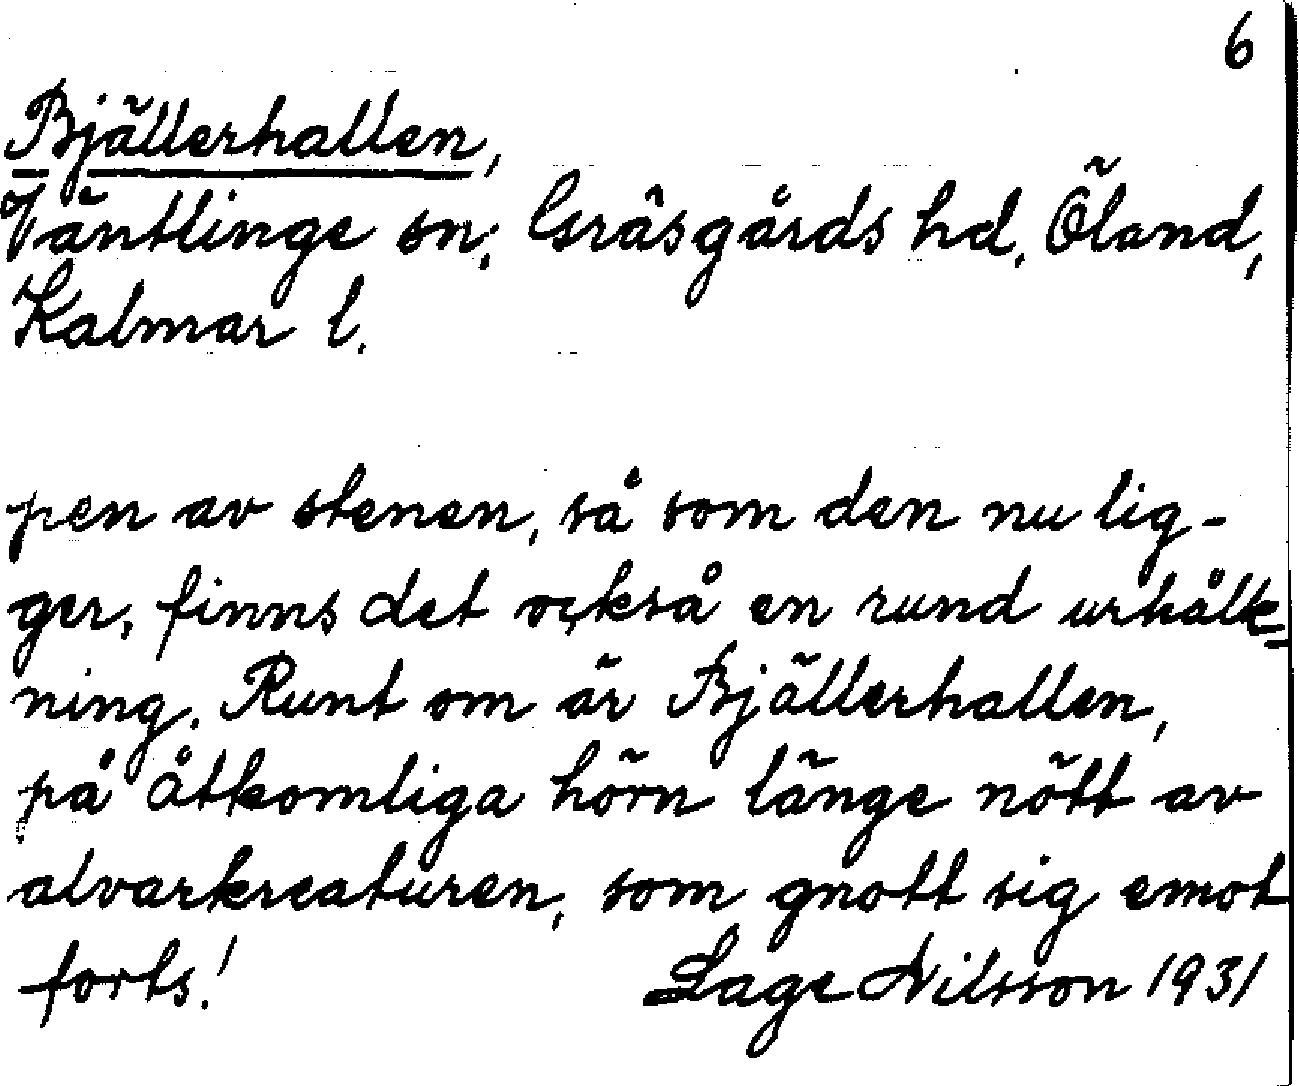 6
Bjällerhallen,
Väntlinge sn, Gräsgårds hd, Öland,
Kalmar l.
pen av stenen, så som den nu lig-
ger, finns det också en rund urhålk-
ning. Runt om är Bjällerhallen,
på åtkomliga hörn länge nött av
alvarkreaturen, som gnott sig emot
forts!
Lage Nilsson 1931